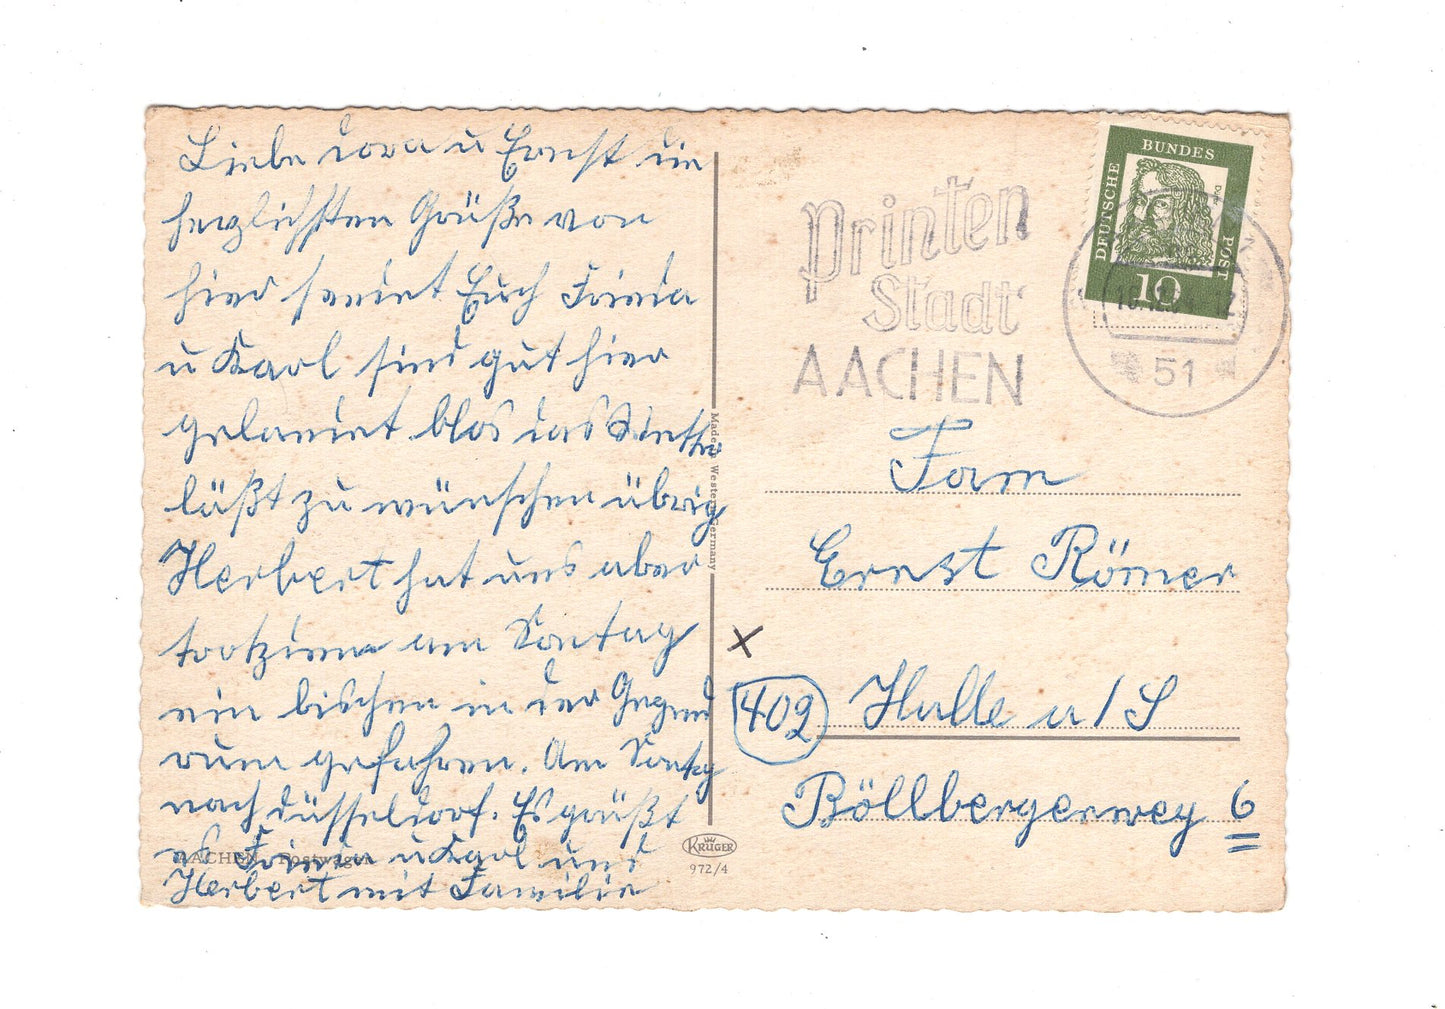 Liebe Dora u Ernst die
herzlichsten Grüße von
hier sendet Euch Frieda
u Karl sind gut hier
gelandet blos das Wetter
läßt zu wünschen übrig
Herbert hat uns aber
trotzdem am Sontag
ein bischen in der Gegend
rum gefahren. Am Sontag
nach Düsseldorf. Es grüßt
Frieda u Karl und
Herbert mit Familie
AACHEN Postwagen
Made in Western Germany
KRÜGER
972/4
Printen
Stadt
AACHEN
DEUTSCHE BUNDES POST
10
51
Fam
Ernst Römer
402 Halle a/S
Böllbergerweg 6